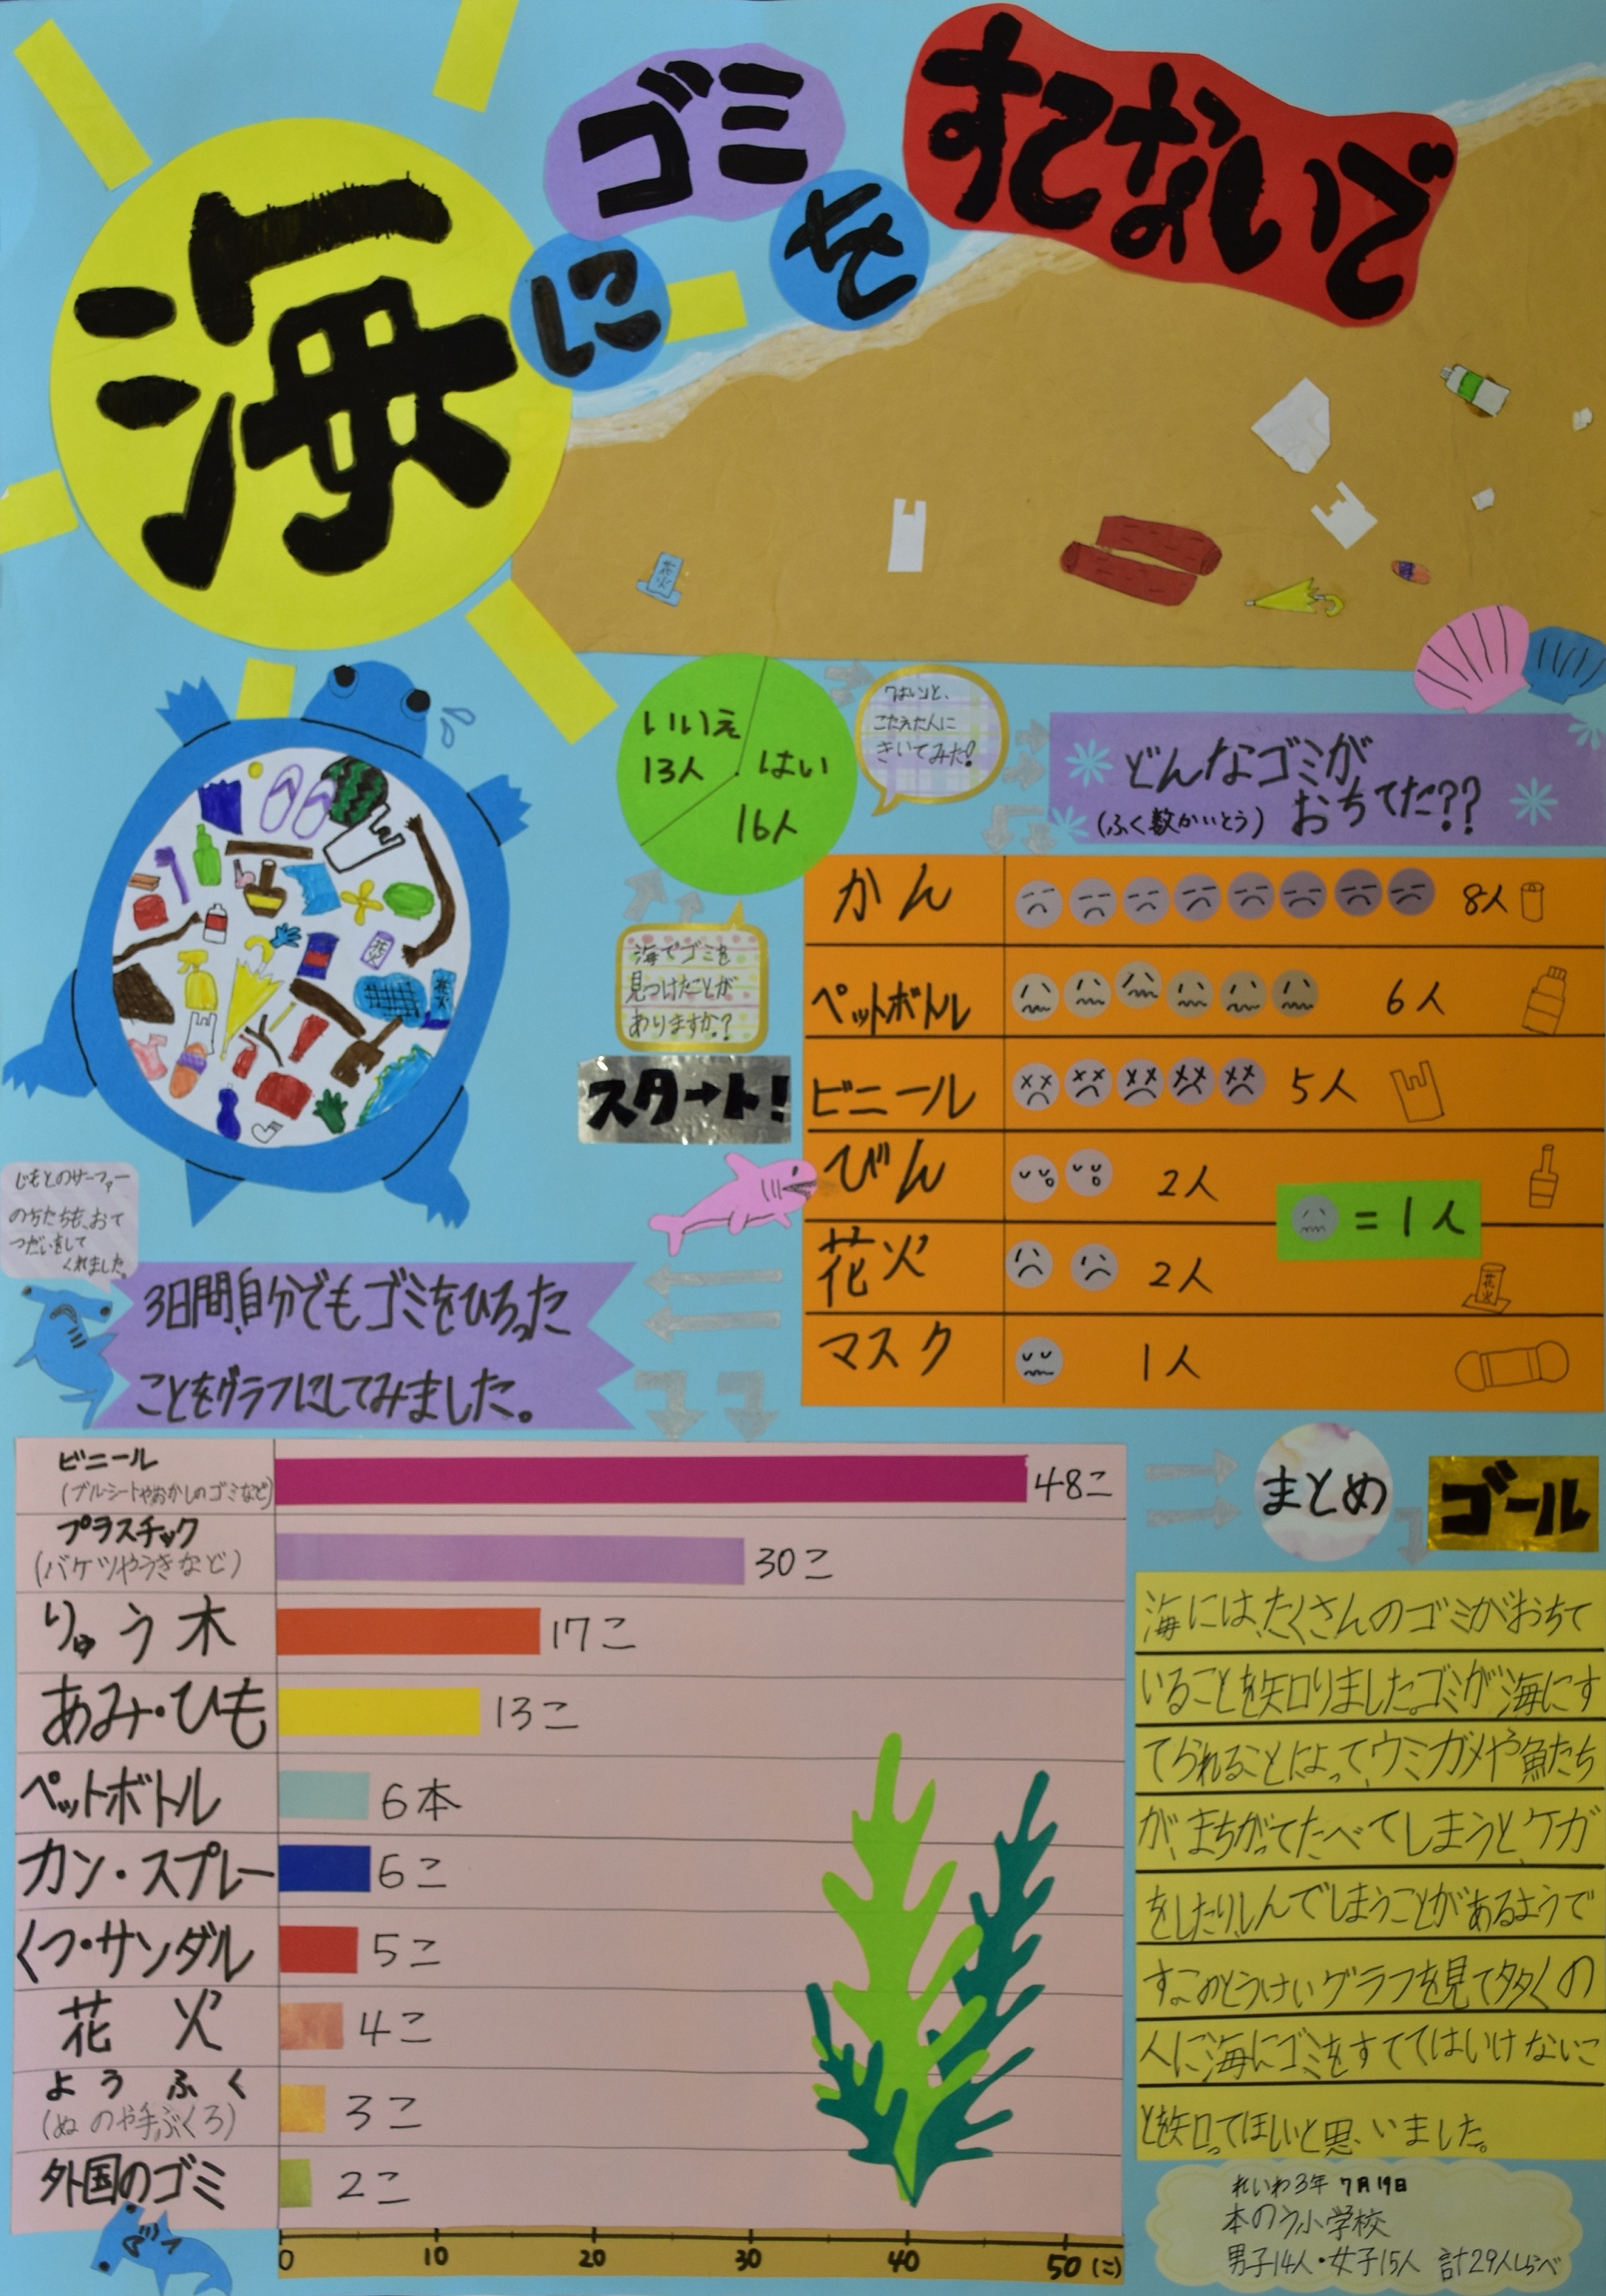 海に
ゴミを
すてないで
花火
いいえ
13人
はい
16人
「はい」と、
こたえた人に
きいてみた!
海でゴミを
見つけたことが
ありますか?
スタート!
どんなゴミが
おちてた??
(ふく数かいとう)
かん 8人
ペットボトル 6人
ビニール 5人
びん 2人
=1人
花火 2人 花火
マスク 1人
花火
花火
じもとのサーファー
の方たちも、おて
つだいをして
くれました。
3日間、自分でもゴミをひろった
ことをグラフにしてみました。
ビニール
(ブルーシートやおかしのゴミなど)
48こ
プラスチック
(バケツやうきなど)
30こ
りゅう木 17こ
あみ・ひも 13こ
ペットボトル 6本
カン・スプレー 6こ
くつ・サンダル 5こ
花火 4こ
ようふく
(ぬのや手ぶくろ)
3こ
外国のゴミ 2こ
0 10 20 30 40 50(こ)
まとめ
ゴール
海には、たくさんのゴミがおちて
いることを知りました。ゴミが海にす
てられることによって、ウミガメや魚たち
が、まちがってたべてしまうと、ケガ
をしたり、しんでしまうことがあるようで
す。このとうけいグラフを見て多くの
人に海にゴミをすててはいけないこ
とを知ってほしいと思いました。
れいわ3年 7月19日
本のう小学校
男子14人・女子15人 計29人しらべ